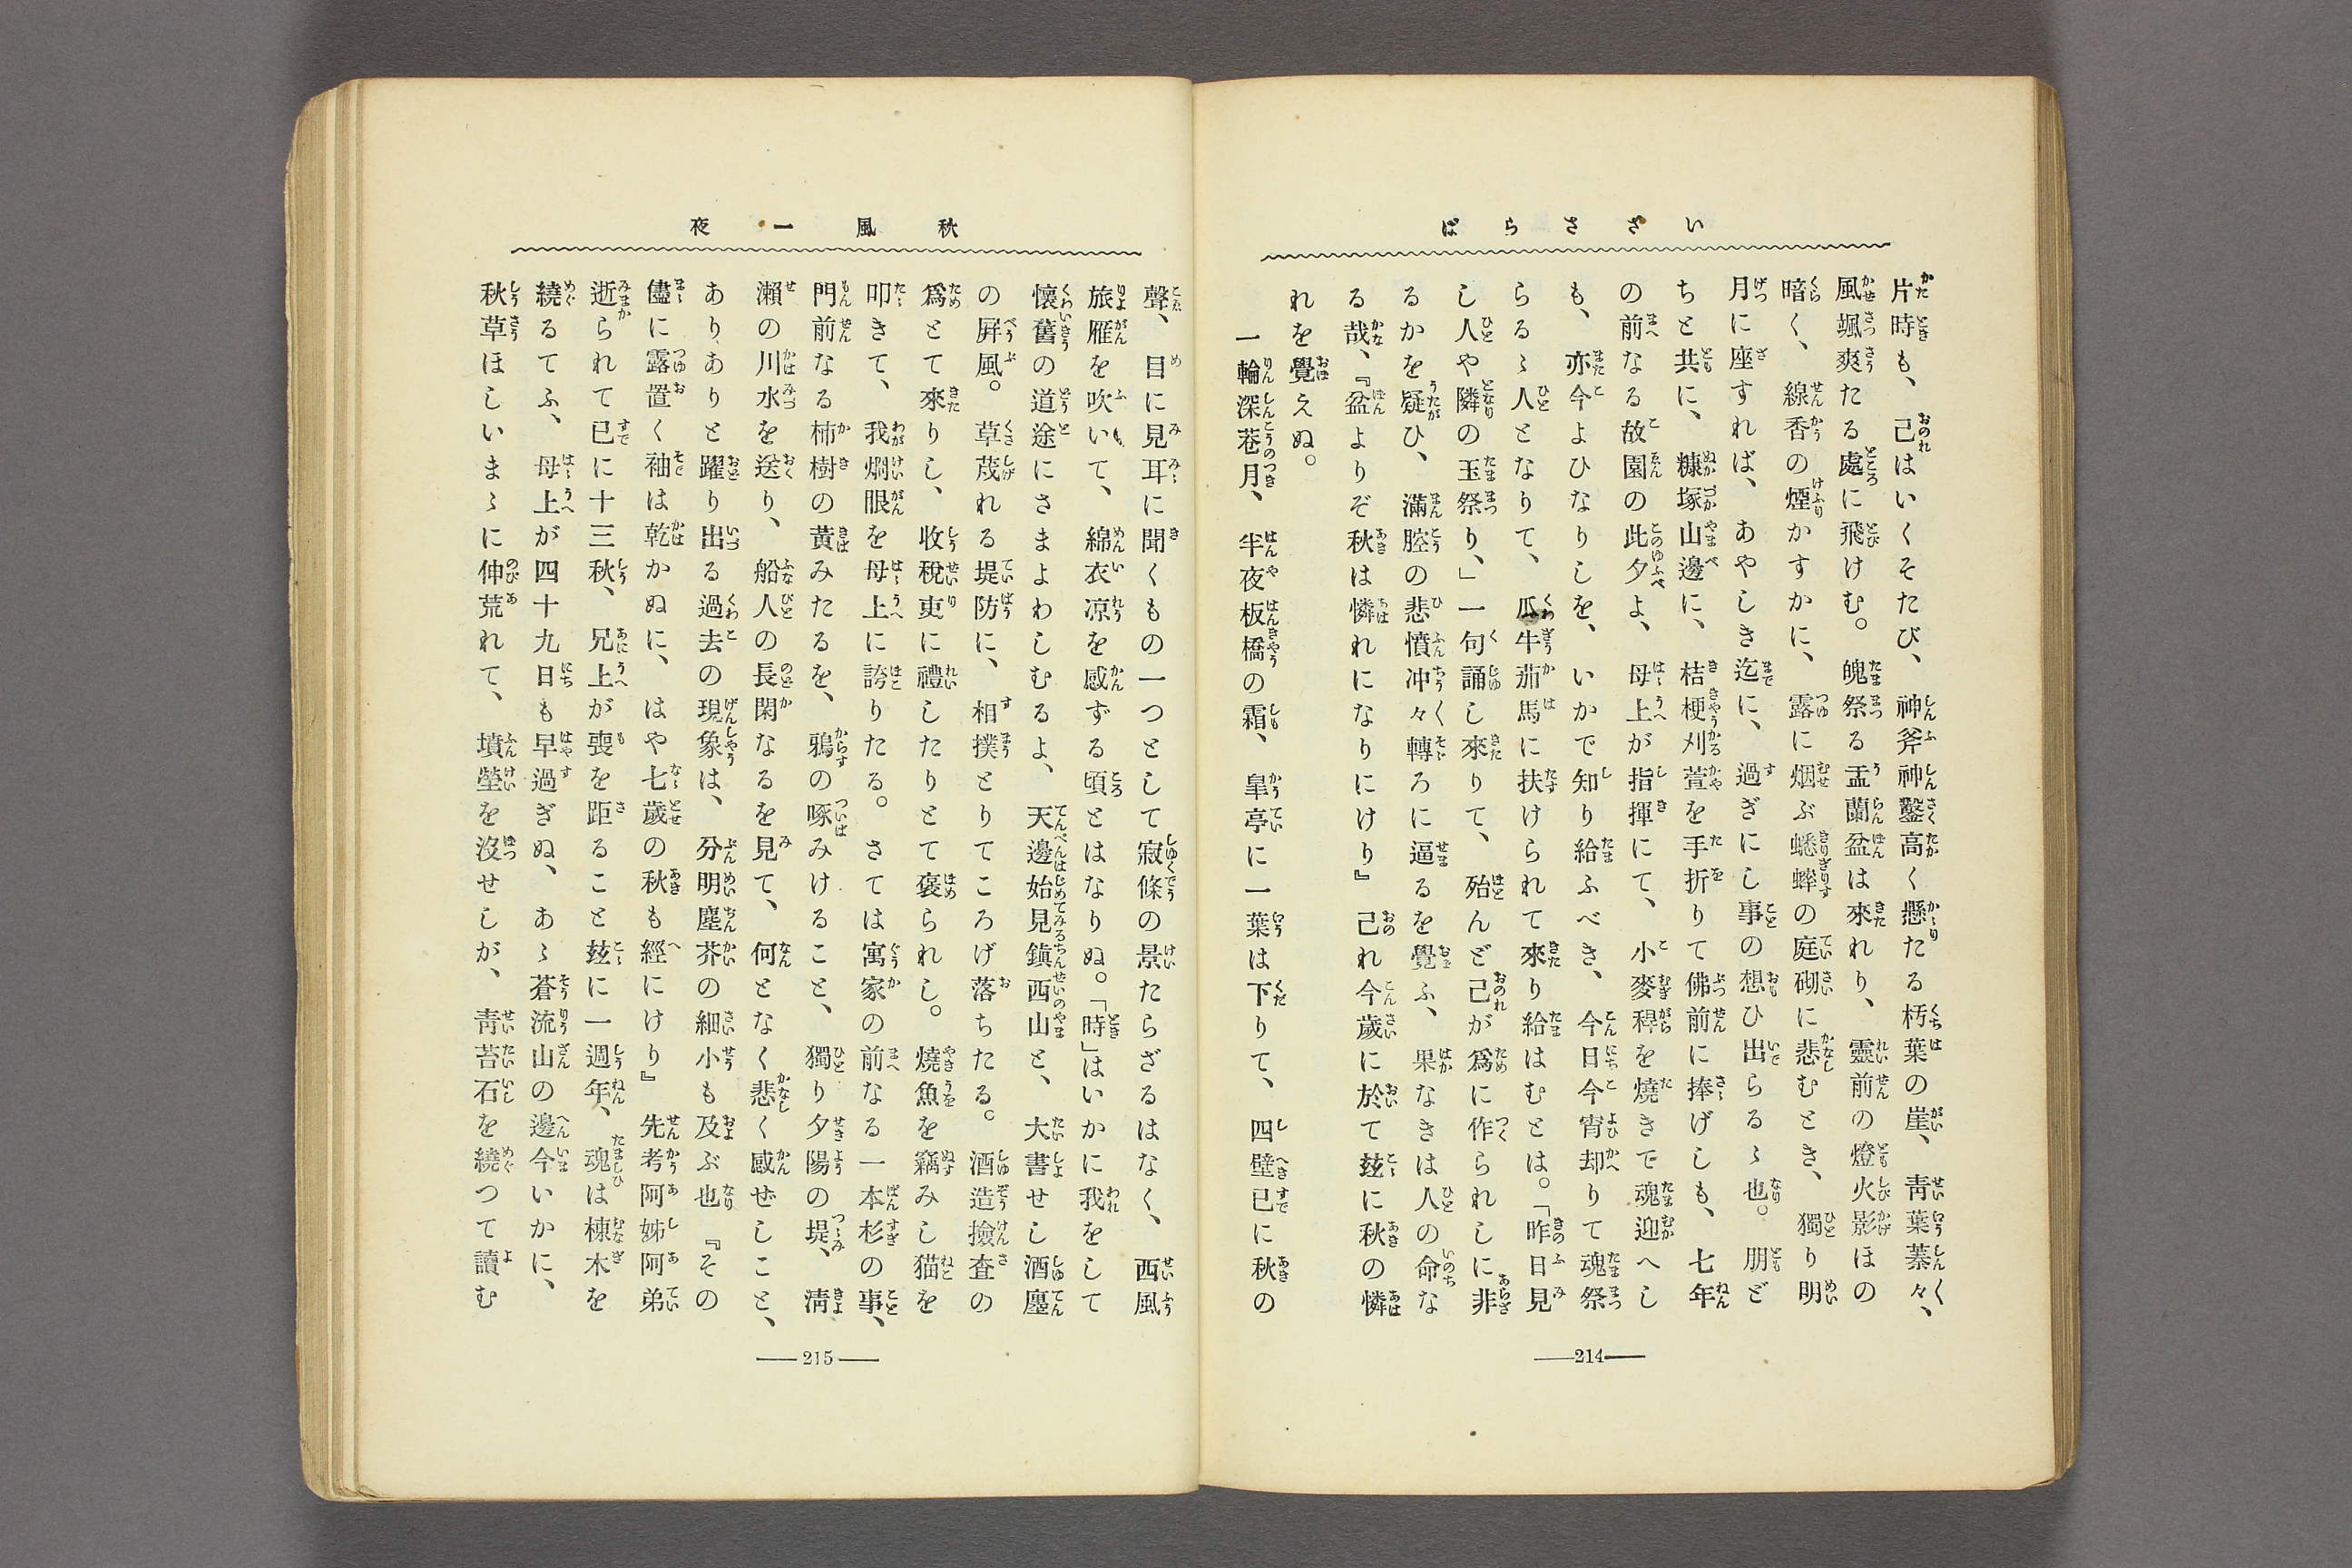 いざさらば
片時も、己はいくそたび、神斧神鑿高く懸たる朽葉の崖、靑葉蓁々、
風颯爽たる處に飛けむ。魄祭る盂蘭盆は來れり、靈前の燈火影ほの
暗く、線香の煙かすかに、露に烟ぶ蟋蟀の庭砌に悲むとき、獨り明
月に座すれば、あやしき迄に、過ぎにし事の想ひ出らるゝ也。朋ど
ちと共に、糠塚山邊に、桔梗刈萱を手折りて佛前に捧げしも、七年
の前なる故園の此夕よ、母上が指揮にて、小麥稈を燒きて魂迎へし
も、亦今よひなりしを、いかで知り給ふべき、今日今宵却りて魂祭
らるゝ人となりて、瓜牛茄馬に扶けられて來り給はむとは。「昨日見
し人や隣の玉祭り、」一句誦し來りて、殆んど己が爲に作られしに非
るかを疑ひ、滿腔の悲憤冲々轉ろに逼るを覺ふ、果なきは人の命な
る哉、『盆よりぞ秋は憐れになりにけり』己れ今歲に於て玆に秋の憐
れを覺えぬ。
一輪深巷月、半夜板橋の霜、皐亭に一葉は下りて、四壁已に秋の
214
秋風一夜
聲、目に見耳に聞くもの一つとして寂條の景たらざるはなく、西風
旅雁を吹いて、綿衣凉を感ずる頃とはなりぬ。「時」はいかに我をして
懷舊の道途にさまよわしむるよ、天邊始見鎭西山と、大書せし酒廛
の屛風。草茂れる堤防に、相撲とりてころげ落ちたる。酒造撿査の
爲とて來りし、收稅吏に禮したりとて褒られし。燒魚を竊みし猫を
叩きて、我烱眼を母上に誇りたる。さては寓家の前なる一本杉の事、
門前なる柿樹の黃みたるを、鴉の啄みけること、獨り夕陽の堤、淸
瀨の川水を送り、船人の長閑なるを見て、何となく悲く感ぜしこと、
ありありと躍り出る過去の現象は、分明塵芥の細小も及ぶ也『その
儘に露置く袖は乾かぬに、はや七歲の秋も經にけり』先考阿姊阿弟
逝られて已に十三秋、兄上が喪を距ること玆に一週年、魂は棟木を
繞るてふ、母上が四十九日も早過ぎぬ、あゝ蒼流山の邊今いかに、
秋草ほしいまゝに伸荒れて、墳塋を沒せしが、靑苔石を繞つて讀む
215